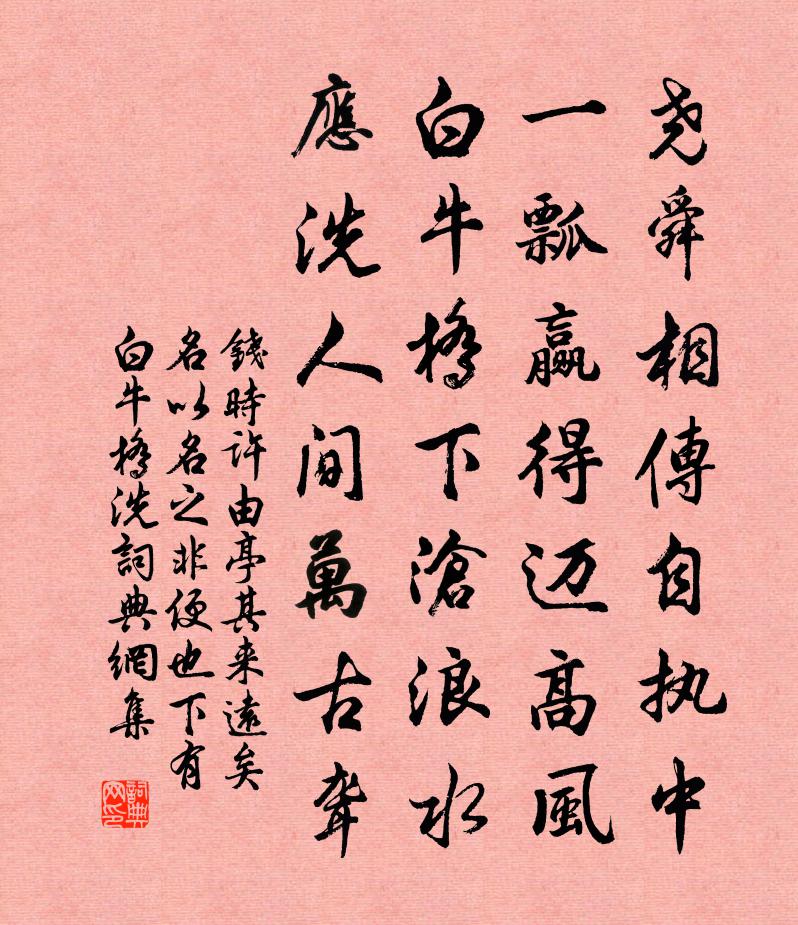 尧舜相傳自执中
一瓢贏得迈高風
白牛橋下滄浪水
應洗人间萬古聾
錢時許由亭其来遠矣
名以名之非便也下有
白牛橋洗詞典網集
詞典网印